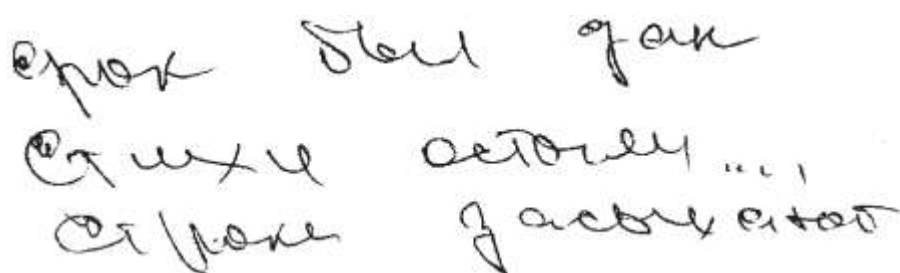 срок был дан
Стихи остались....
Строки засыхают